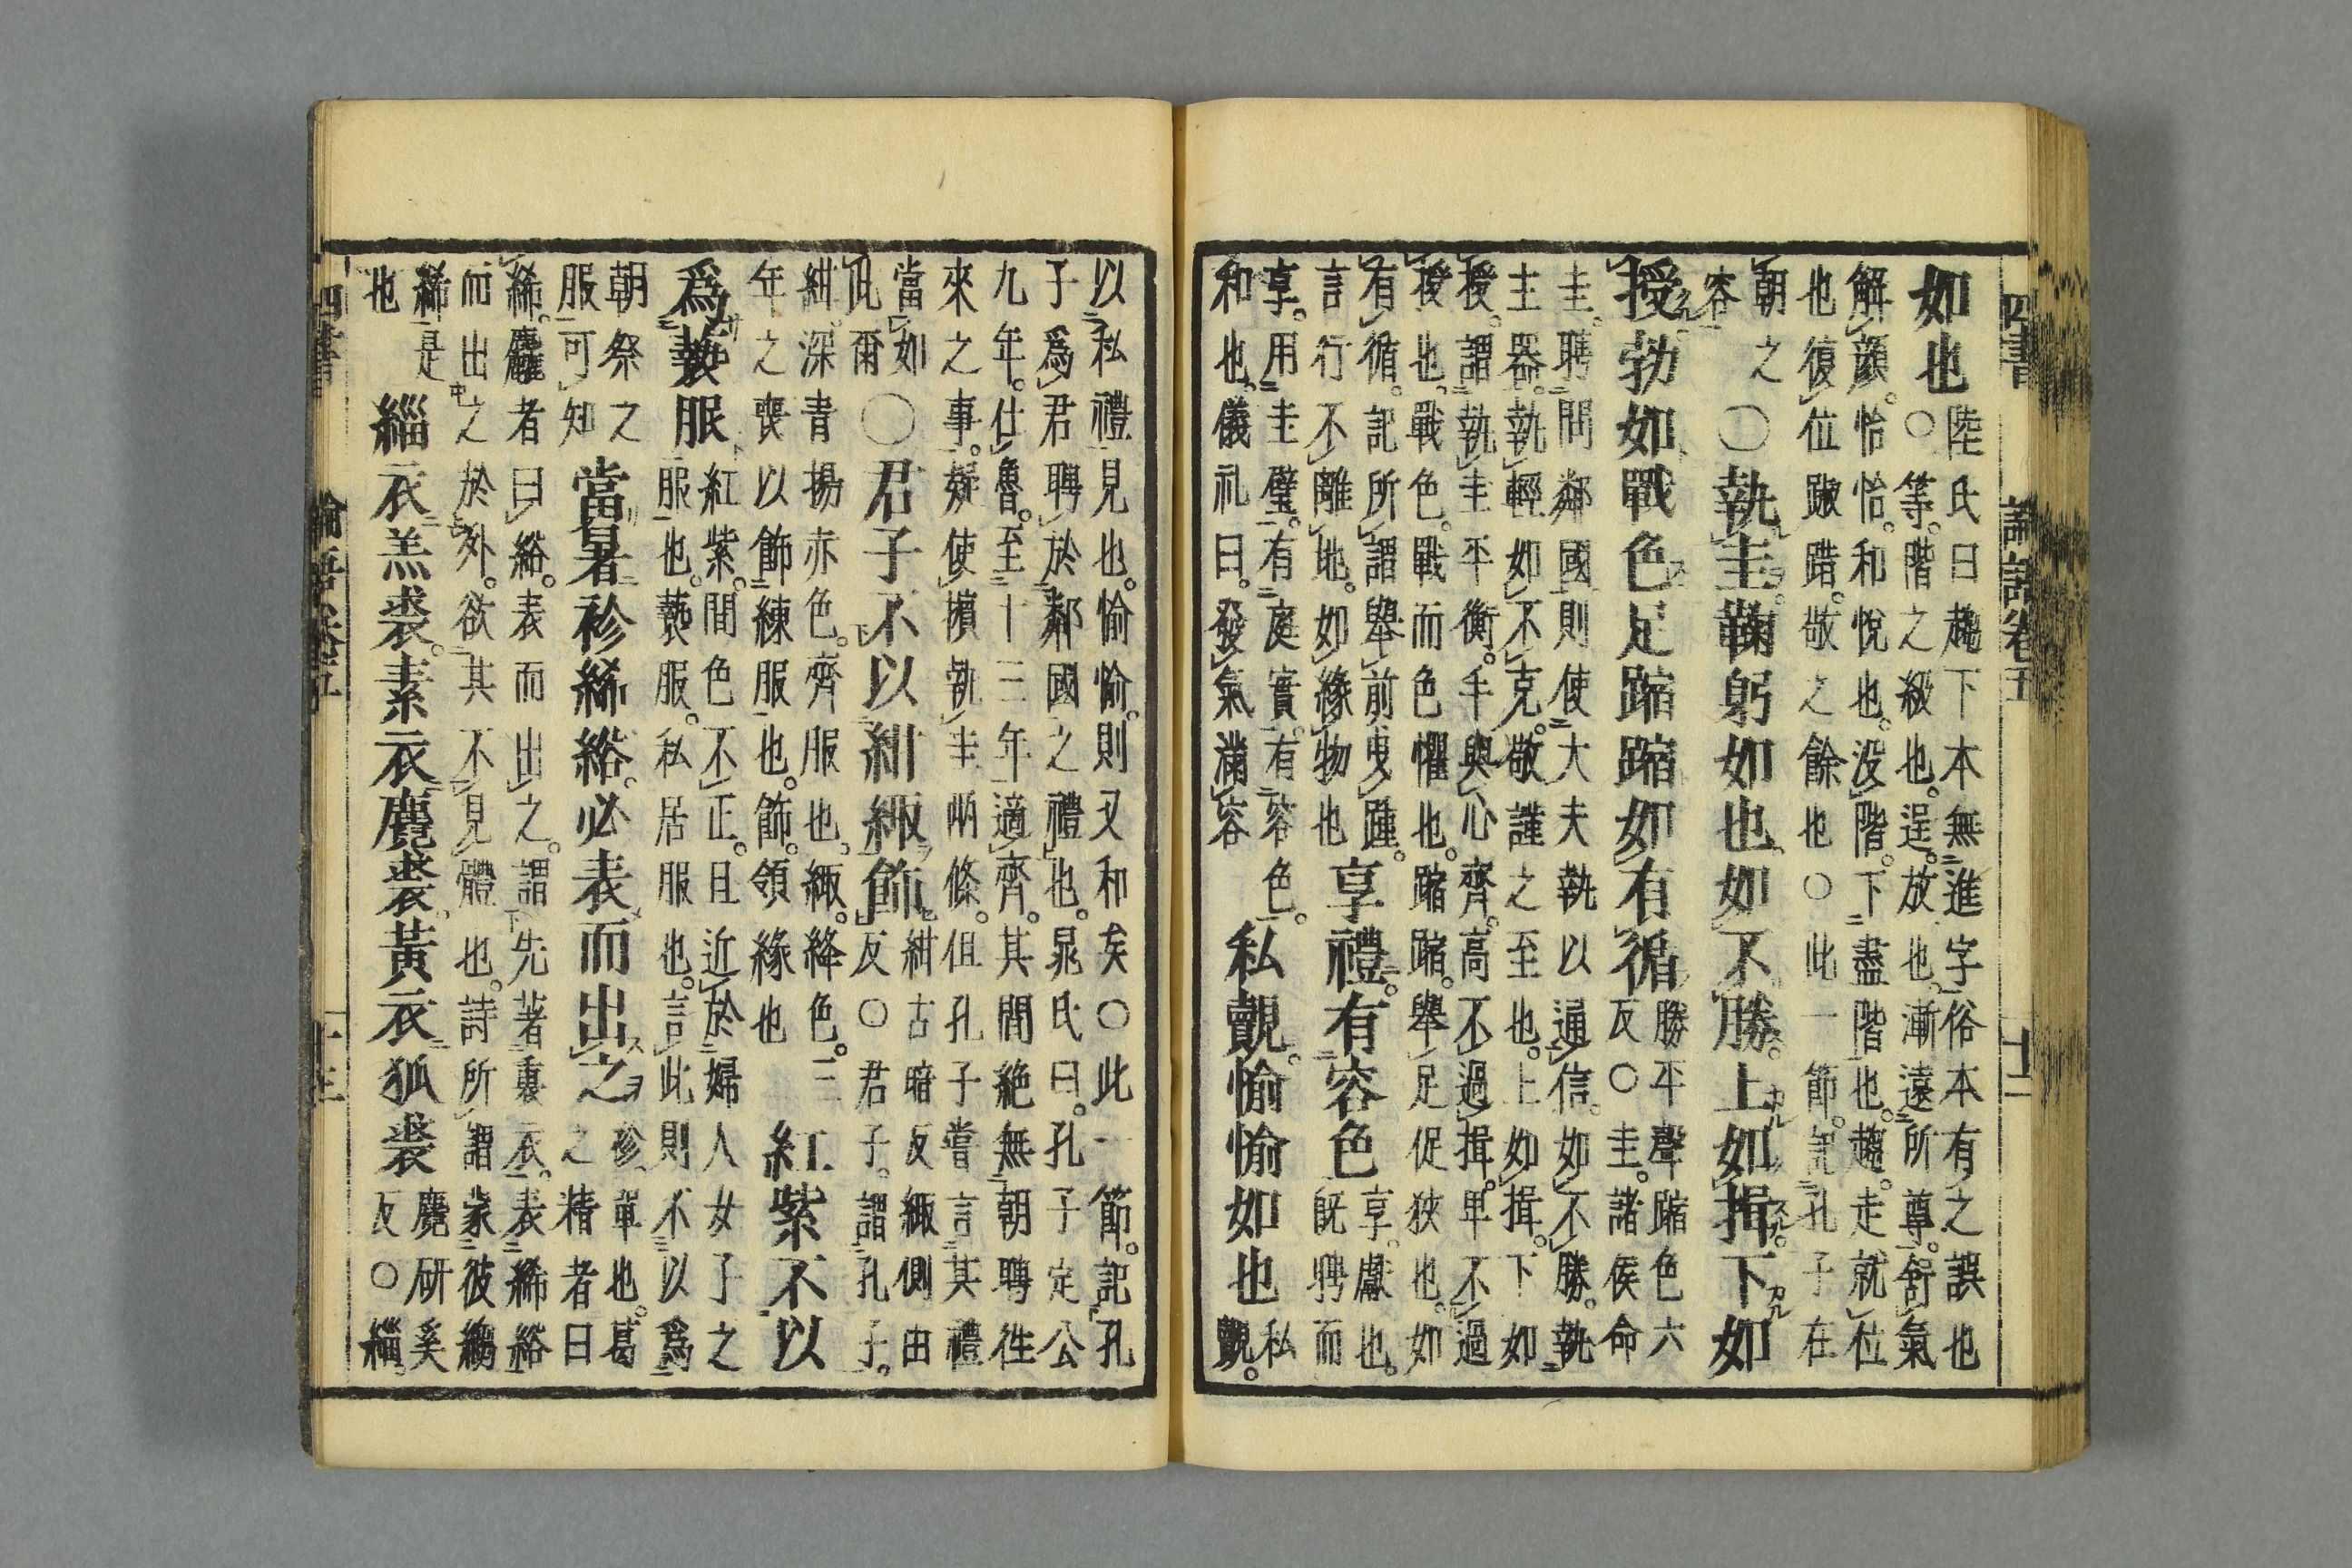 四書　論語卷五　十二
如也
陸氏曰趨下本無進字俗本有之誤也
○等階之級也逞放也漸遠所尊舒氣
解顏怡怡和悅也沒階下盡階也趨走就位
也復位踧踖敬之餘也○此一節記孔子在
朝之
容
○執圭鞠躬如也如不勝上如揖下如
授勃如戰色足蹜蹜如有循
勝平聲蹜色六
反○圭諸侯命
圭聘問鄰國則使大夫執以通信如不勝執
主器執輕如不克敬謹之至也上如揖下如
授謂執圭平衡手與心齊高不過揖卑不過
授也戰色戰而色懼也蹜蹜舉足促狹也如
有循記所謂舉前曳踵
言行不離地如緣物也
享禮有容色
享獻也
既聘而
享用圭璧有庭實有容色
和也儀礼曰發氣滿容
私覿愉愉如也
私
覿
以私禮見也愉愉則又和矣○此一節記孔
子爲君聘於鄰國之禮也晁氏曰孔子定公
九年仕魯至十三年適齊其間絶無朝聘徃
來之事疑使擯執圭兩條但孔子嘗言其禮
當如
此爾
○君子不以紺緅飾
紺古暗反緅側由
反○君子謂孔子
紺深青揚赤色齊服也緅絳色三
年之喪以飾練服也飾領緣也
紅紫不以
爲褻服
紅紫間色不正且近於婦人女子之
服也褻服私居服也言此則不以爲
朝祭之
服可知
當暑袗絺綌必表而出之
袗單也葛
之精者曰
絺麤者曰綌表而出之謂先著裏衣表絺綌
而出之於外欲其不見體也詩所謂蒙彼縐
絺是
也
緇衣羔裘素衣麑裘黃衣狐裘
麑研奚
反○緇
四書　論語卷五　十三